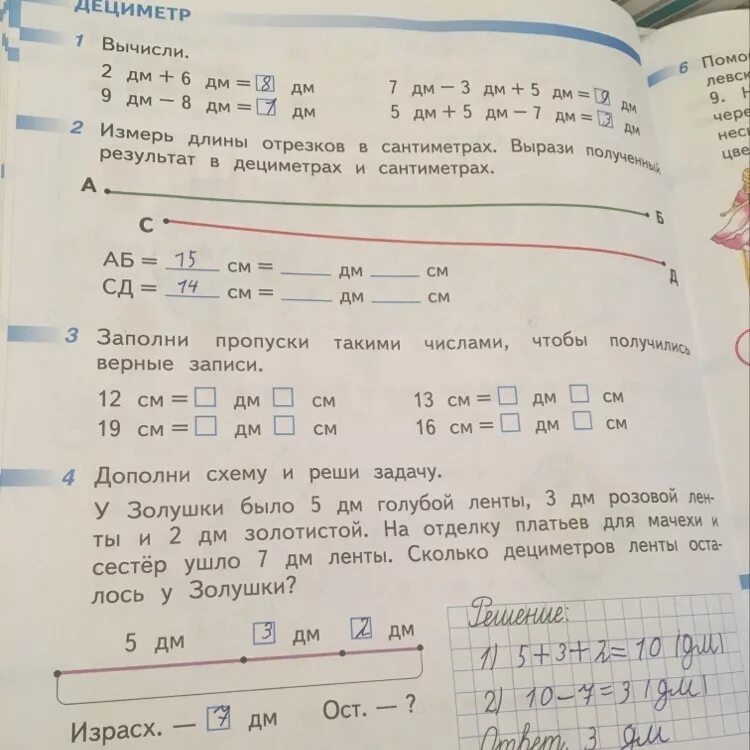 ДЕЦИМЕТР
1 Вычисли.
2 дм + 6 дм = 8 дм
7 дм − 3 дм + 5 дм = 9 дм
9 дм − 8 дм = 1 дм
5 дм + 5 дм − 7 дм = 3 дм
2 Измерь длины отрезков в сантиметрах. Вырази полученный
результат в дециметрах и сантиметрах.
А
Б
С
Д
АБ = 15 см = ____ дм ____ см
СД = 14 см = ____ дм ____ см
3 Заполни пропуски такими числами, чтобы получились
верные записи.
12 см = □ дм □ см
13 см = □ дм □ см
19 см = □ дм □ см
16 см = □ дм □ см
4 Дополни схему и реши задачу.
У Золушки было 5 дм голубой ленты, 3 дм розовой лен-
ты и 2 дм золотистой. На отделку платьев для мачехи и
сестёр ушло 7 дм ленты. Сколько дециметров ленты оста-
лось у Золушки?
5 дм 3 дм 2 дм
Израсх. — 7 дм Ост. — ?
Решение:
1) 5+3+2=10 (дм)
2) 10−7=3 (дм)
Ответ. 3 дм
6 Помо
левск
9.
чере
нес
цве